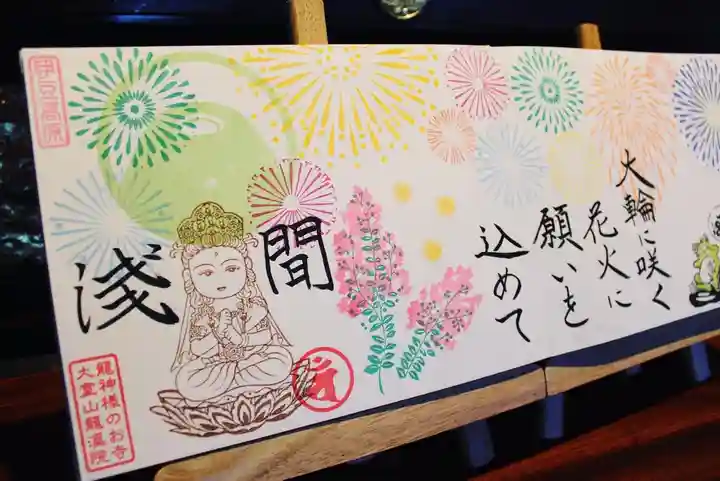 大輪に咲く
花火に
願いを
込めて
浅間
伊豆高原
龍神様のお寺
大霊山龍渓院